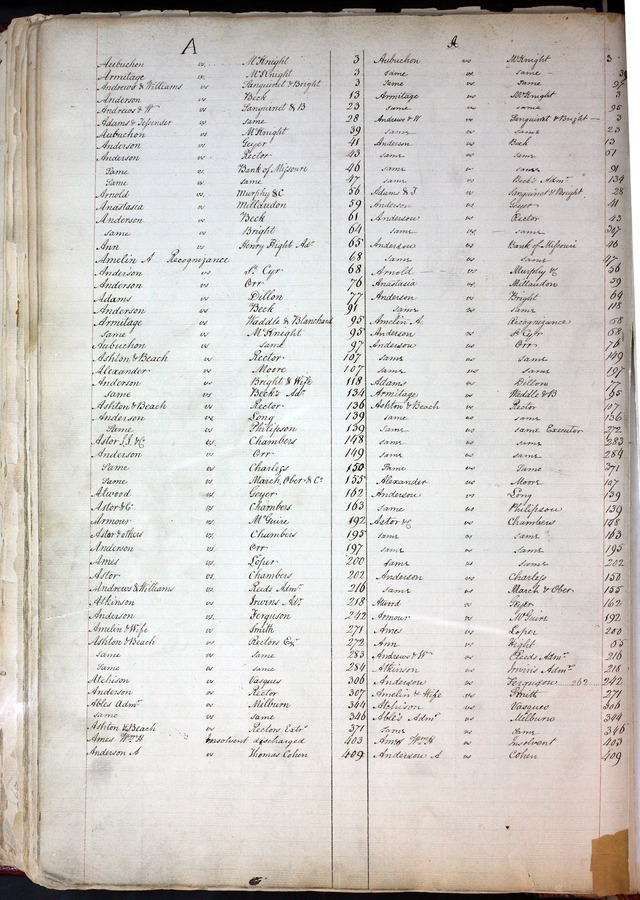 A
Aubuchon vs McKnight 3
Armitage vs McKnight 3
Andrews & Williams vs Sanguinet & Bright 3
Anderson vs Beck 13
Andrews & Wm vs Sanguinet & B 23
Adams & vs same 28
Aubuchon vs McKnight 39
Anderson vs Geyer 41
Anderson vs Rector 43
Same vs Bank of Missouri 46
Same vs same 47
Arnold vs Murphy & C 56
Anastasia vs Millaudon 59
Anderson vs Beck 61
same vs Bright 64
Ann vs Henry Hight Adr 65
Amelin A Recognizance 68
Anderson vs St Cyr 68
Anderson vs Orr 76
Adams vs Dillon 77
Anderson vs Beck 91
Armitage vs Waddle & Blanchard 95
Same vs McKnight 95
Aubuchon vs same 97
Ashton & Beach vs Rector 107
Alexander vs Moore 107
Anderson vs Bright & Wife 118
same vs Beck's Adr 134
Ashton & Beach vs Rector 136
Anderson vs Long 139
Same vs Philipson 139
Astor J.J. & C vs Chambers 148
Anderson vs Orr 149
Same vs Charless 150
Same vs March, Ober & Co 155
Atwood vs Geyer 162
Astor & Co vs Chambers 163
Armour vs McGuire 192
Astor & others vs Chambers 195
Anderson vs Orr 197
Ames vs Loper 200
Astor vs Chambers 202
Andrews & Williams vs Reeds Admr 216
Atkinson vs Irwins Adr 218
Anderson vs Ferguson 242
Amelin & Wife vs Smith 271
Ashton & Beach vs Rectors Exr 272
same vs same 283
Same vs same 284
Atchison vs Vasques 306
Anderson vs Rector 307
Ables Admr vs Milburn 344
same vs same 346
Ashton & Beach vs Rectors Extr 371
Ames Wm H Insolvent discharged 403
Anderson A vs Thomas Cohen 409
A
Aubuchon vs McKnight 3
same vs same 39
Same vs Same 97
Armitage vs McKnight 3
same vs same 95
Andrews & W vs Sanguinet & Bright 3
same vs same 23
Anderson vs Beck 13
same vs same 61
same vs same 91
same vs Beck's Admr 134
Adams & J vs Sanguinet & Bright 28
Anderson vs Geyer 41
Anderson vs Rector 43
same vs same 307
Anderson vs Bank of Missouri 46
same vs same 47
Arnold vs Murphy & C 56
Anastasia vs Millaudon 59
Anderson vs Bright 64
same vs same 118
Amelin A. Recognizance 68
Anderson vs St Cyr 68
Anderson vs Orr 76
same vs same 149
same vs same 197
Adams vs Dillon 77
Armitage vs Waddle & B 95
Ashton & Beach vs Rector 107
same vs same 136
same vs same Executor 272
same vs same 283
same vs same 284
Same vs Same 371
Alexander vs Moore 107
Anderson vs Long 139
same vs Philipson 139
Astor & C vs Chambers 148
same vs same 163
same vs same 195
same vs same 202
Anderson vs Charless 150
Same vs March & Ober 155
Atwood vs Geyer 162
Armour vs McGuire 192
Ames vs Loper 200
Ann vs Hight 65
Andrews & Wm vs Reeds Admr 216
Atkinson vs Irwin's Admr 218
Anderson vs Ferguson 262 242
Amelin & Wife vs Smith 271
Atchison vs Vasques 306
Able's Admr vs Milburn 344
Same vs same 346
Ames Wm H vs Insolvent 403
Anderson A vs Cohen 409